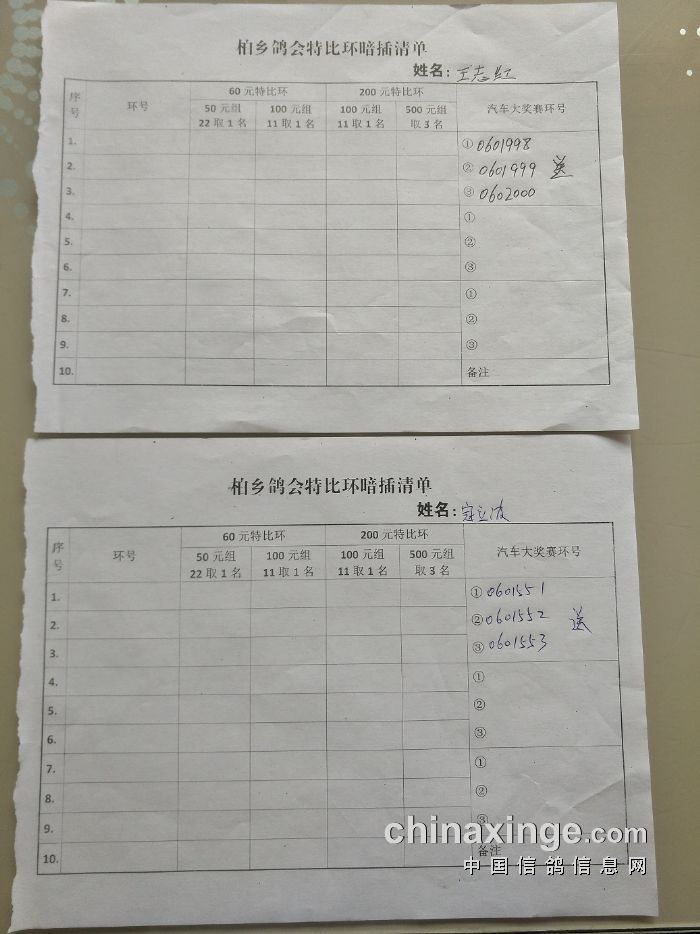 柏乡鸽会特比环暗插清单
姓名：王志红
序号 环号 60元特比环 200元特比环 汽车大奖赛环号
50元组 22取1名 100元组 11取1名 100元组 11取1名 500元组 取3名
1. ① 0601998
2. ② 0601999 送
3. ③ 0602000
4. ①
5. ②
6. ③
7. ①
8. ②
9. ③
10. 备注
柏乡鸽会特比环暗插清单
姓名：寇立波
序号 环号 60元特比环 200元特比环 汽车大奖赛环号
50元组 22取1名 100元组 11取1名 100元组 11取1名 500元组 取3名
1. ① 0601551
2. ② 0601552 送
3. ③ 0601553
4. ①
5. ②
6. ③
7. ①
8. ②
9. ③
10. 备注
chinaxinge.com
中国信鸽信息网